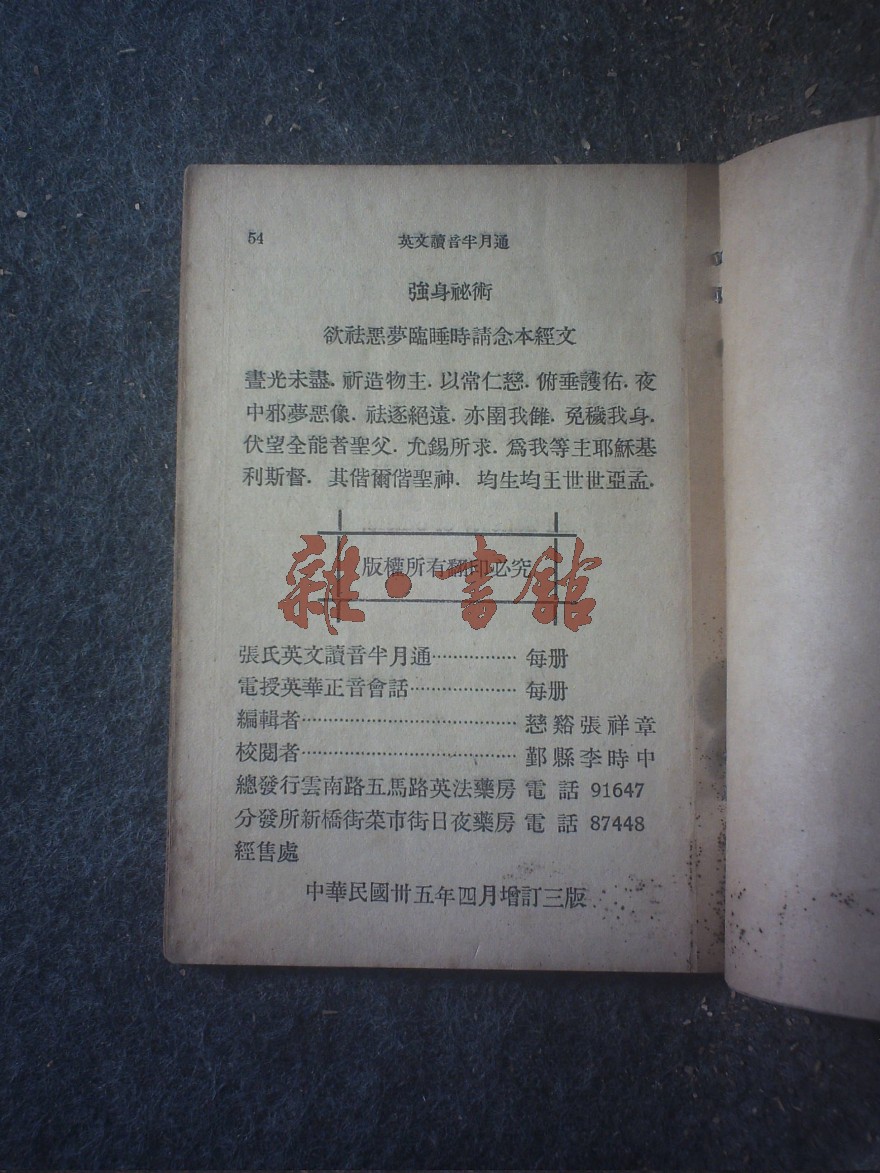 54
英文讀音半月通
強身祕術
欲祛惡夢臨睡時請念本經文
晝光未盡. 祈造物主. 以常仁慈. 俯垂護佑. 夜
中邪夢惡像. 祛逐絕遠. 亦圍我雠. 免穢我身.
伏望全能者聖父. 允錫所求. 爲我等主耶穌基
利斯督. 其偕爾偕聖神. 均生均王世世亞孟.
版權所有翻印必究
雜·書館
張氏英文讀音半月通……………每册
電授英華正音會話………………每册
編輯者………………………………慈谿張祥章
校閱者………………………………鄞縣李時中
總發行雲南路五馬路英法藥房 電話 91647
分發所新橋街菜市街日夜藥房 電話 87448
經售處
中華民國卅五年四月增訂三版